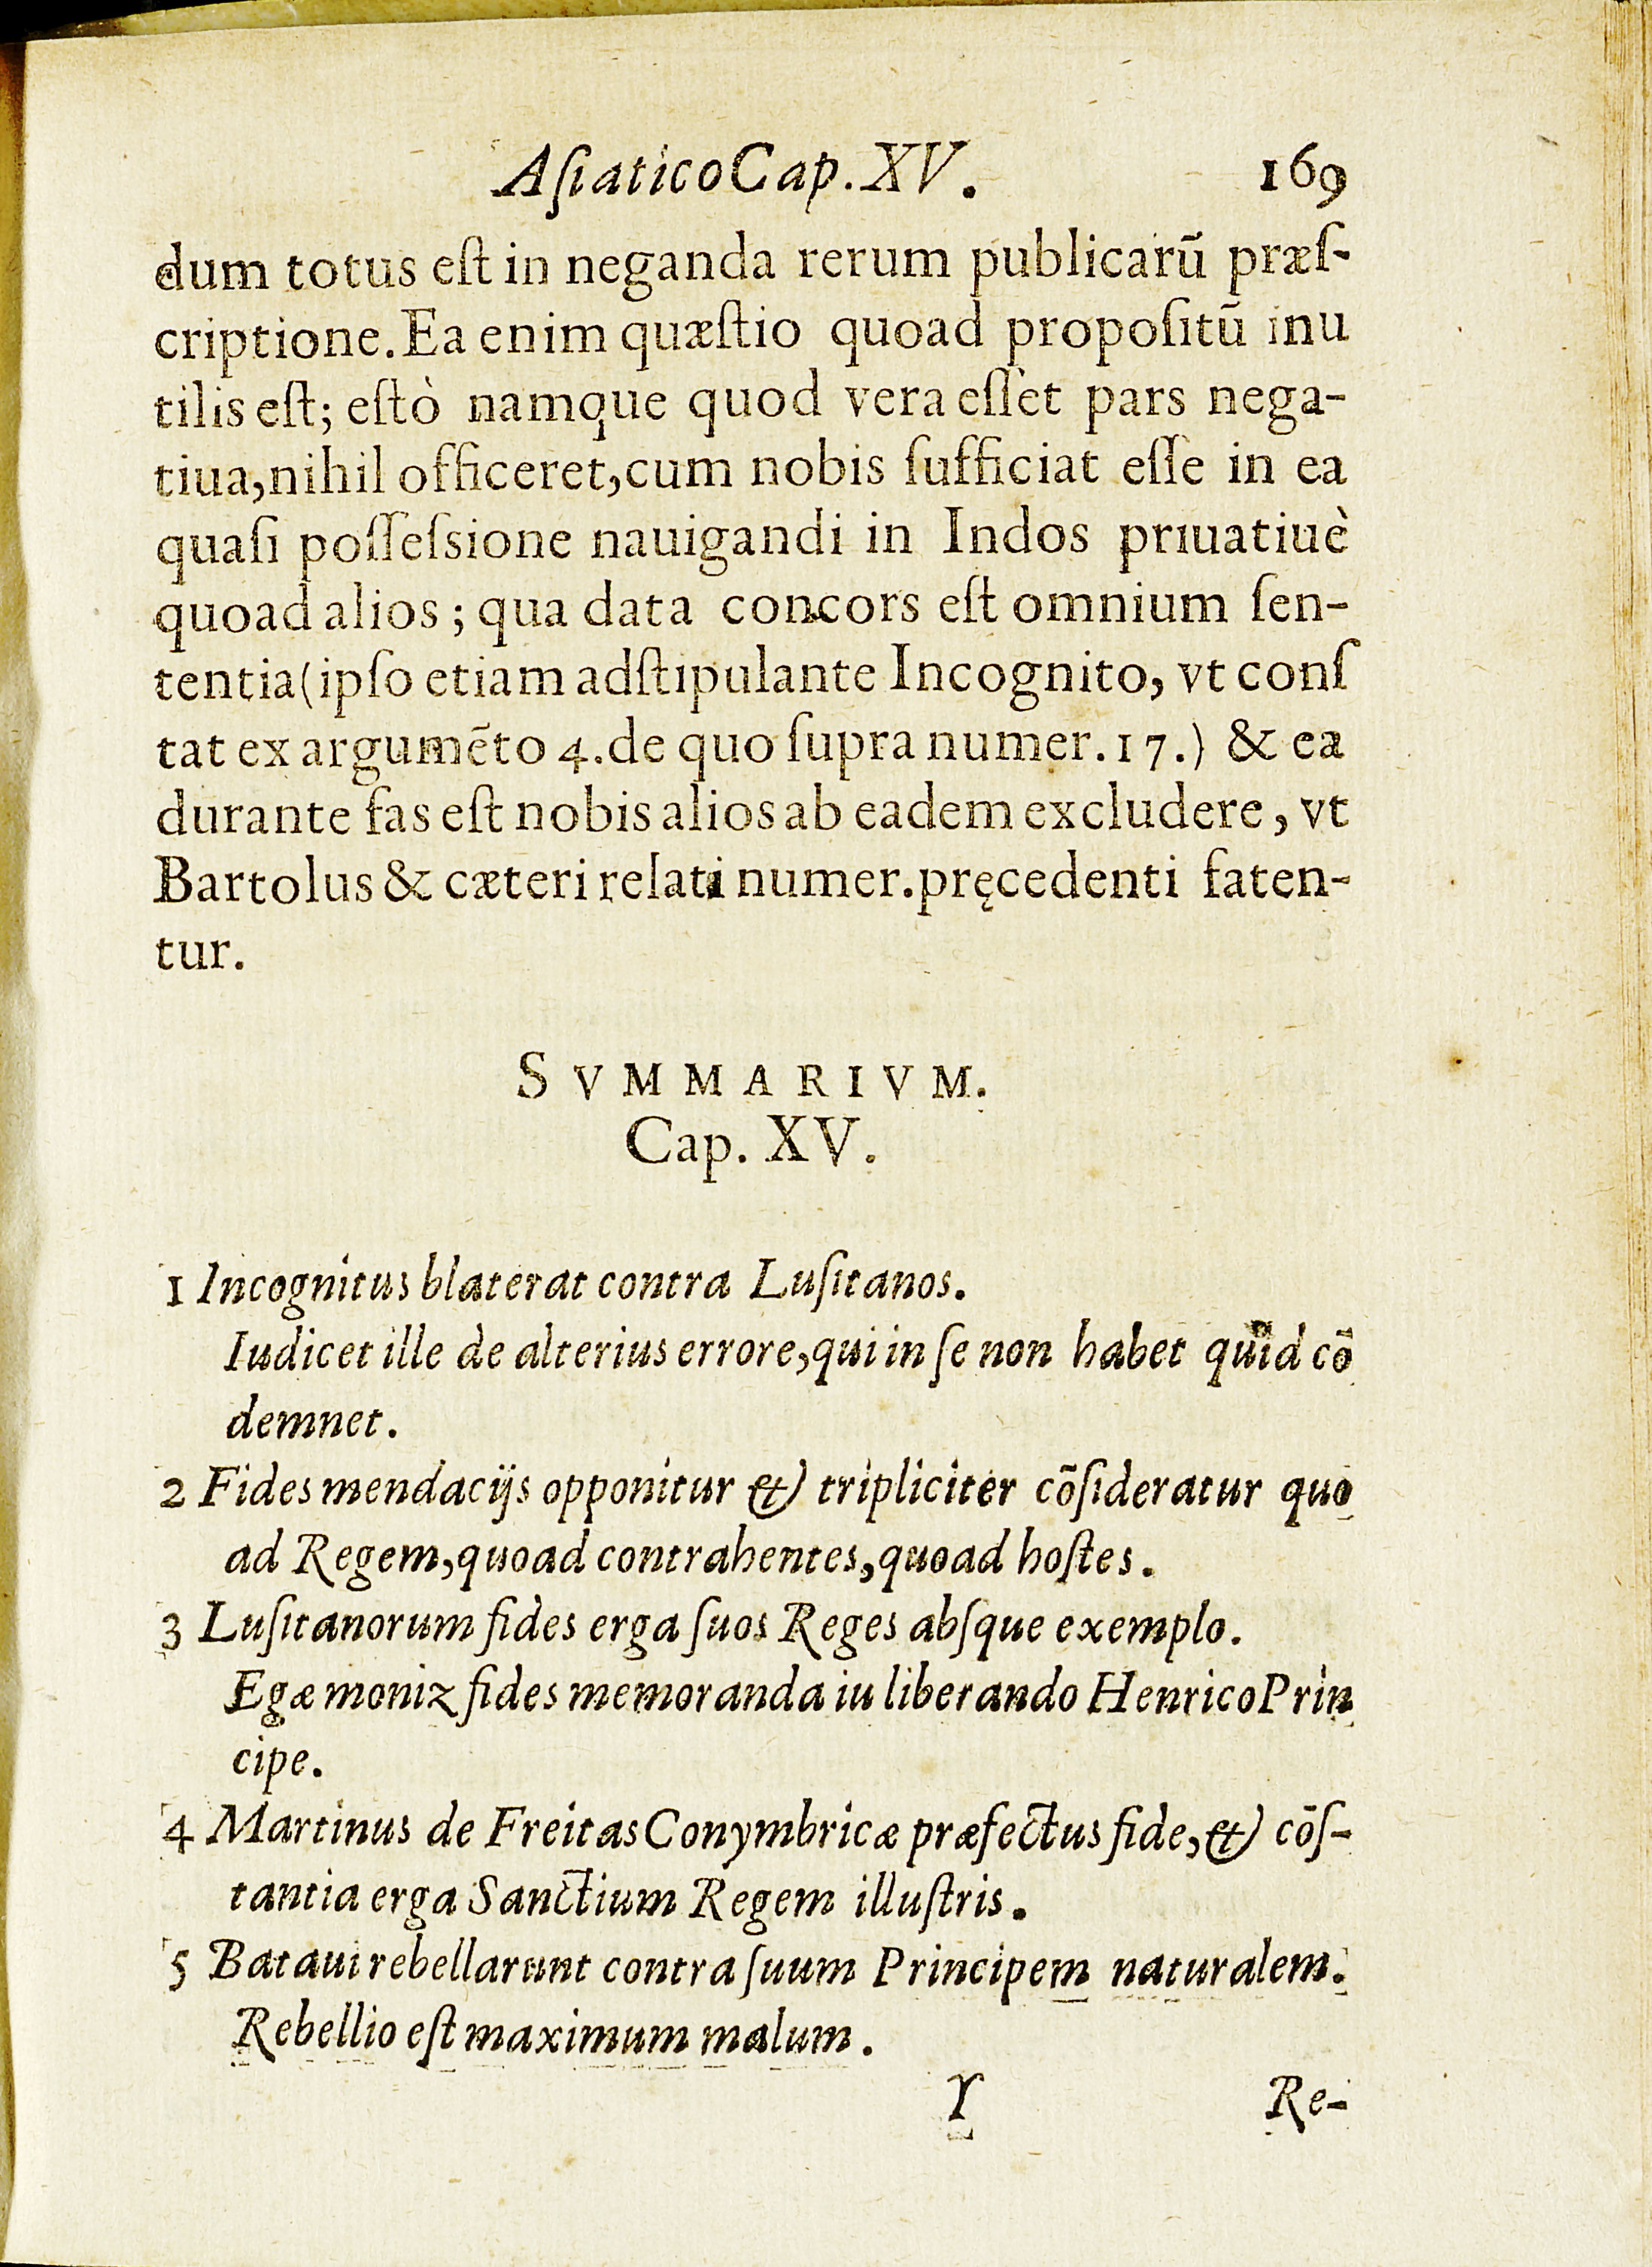 Aſiatico Cap. XV. 169
dum totus eſt in neganda rerum publicarũ præſ-
criptione. Ea enim quæſtio quoad propoſitũ inu
tilis eſt; eſtò namque quod vera eſſèt pars nega-
tiua, nihil officeret, cum nobis ſufficiat eſſe in ea
quaſi poſſeſsione nauigandi in Indos priuatiuè
quoad alios; qua data concors eſt omnium ſen-
tentia (ipſo etiam adſtipulante Incognito, vt conſ
tat ex argumẽto 4. de quo ſupra numer. 17.) & ea
durante fas eſt nobis alios ab eadem excludere, vt
Bartolus & cæteri relati numer. pręcedenti faten-
tur.
SVMMARIVM.
Cap. XV.
1 Incognitus blaterat contra Luſitanos.
Iudicet ille de alterius errore, qui in ſe non habet quid cõ
demnet.
2 Fides mendacijs opponitur & tripliciter cõſideratur quo
ad Regem, quoad contrahentes, quoad hoſtes.
3 Luſitanorum fides erga ſuos Reges abſque exemplo.
Egæ moniz fides memoranda iu liberando Henrico Prin
cipe.
4 Martinus de Freitas Conymbricæ præfectus fide, & cõſ-
tantia erga Sanctium Regem illuſtris.
5 Bataui rebellarunt contra ſuum Principem naturalem.
Rebellio eſt maximum malum.
Y Re-